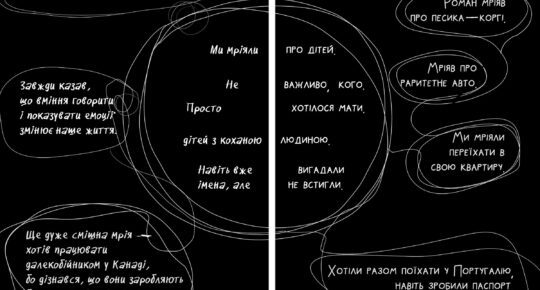 Ми мріяли про дітей.
Не важливо, кого.
Просто хотілося мати.
дітей з коханою людиною.
Навіть вже вигадали
імена, але не встигли.
Завжди казав,
що вміння говорити
і показувати емоції
змінює наше життя.
Ще дуже смішна мрія —
хотів працювати
далекобійником у Канаді,
бо дізнався, що вони заробляють
Роман мріяв
про песика—коргі.
Мріяв про
раритетне авто.
Ми мріяли
переїхати в
свою квартиру.
Хотіли разом поїхати у Португалію,
навіть зробили паспорт